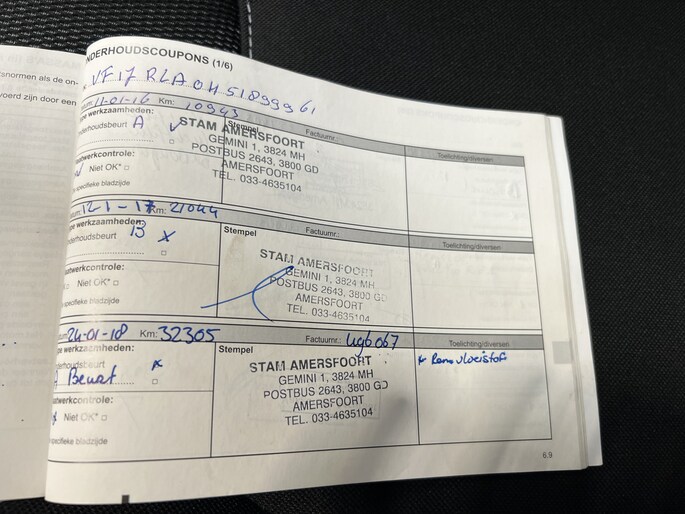 tsnormen als de on-
oerd zijn door een
NDERHOUDSCOUPONS (1/6)
VF17RLA0H51899961
tum: 11-01-16 Km: 10943
pe werkzaamheden:
nderhoudsbeurt A
Stempel
Factuurnr.:
Toelichting/diversen
STAM AMERSFOORT
GEMINI 1, 3824 MH
POSTBUS 2643, 3800 GD
AMERSFOORT
TEL. 033-4635104
atwerkcontrole:
Niet OK*
specifieke bladzijde
tum: 12-1-17 Km: 21044
pe werkzaamheden:
nderhoudsbeurt B
Stempel
Factuurnr.:
Toelichting/diversen
STAM AMERSFOORT
GEMINI 1, 3824 MH
POSTBUS 2643, 3800 GD
AMERSFOORT
TEL. 033-4635104
atwerkcontrole:
Niet OK*
specifieke bladzijde
24-01-18 Km: 32305
pe werkzaamheden:
derhoudsbeurt
Beurt
Stempel
Factuurnr.:
Toelichting/diversen
* Remvloeistof
STAM AMERSFOORT
GEMINI 1, 3824 MH
POSTBUS 2643, 3800 GD
AMERSFOORT
TEL. 033-4635104
twerkcontrole:
Niet OK*
specifieke bladzijde
6.9